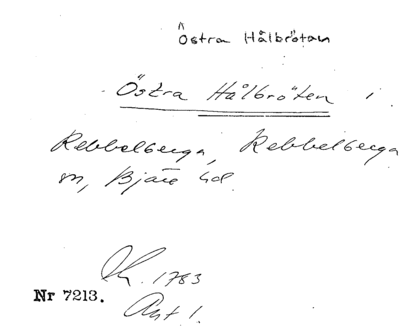 Östra Hålbrötan
Östra Hålbröten i
Rebbelberga, Rebbelberga
sn, Bjäre hd.
Nr 7213.
1783
Akt 1.